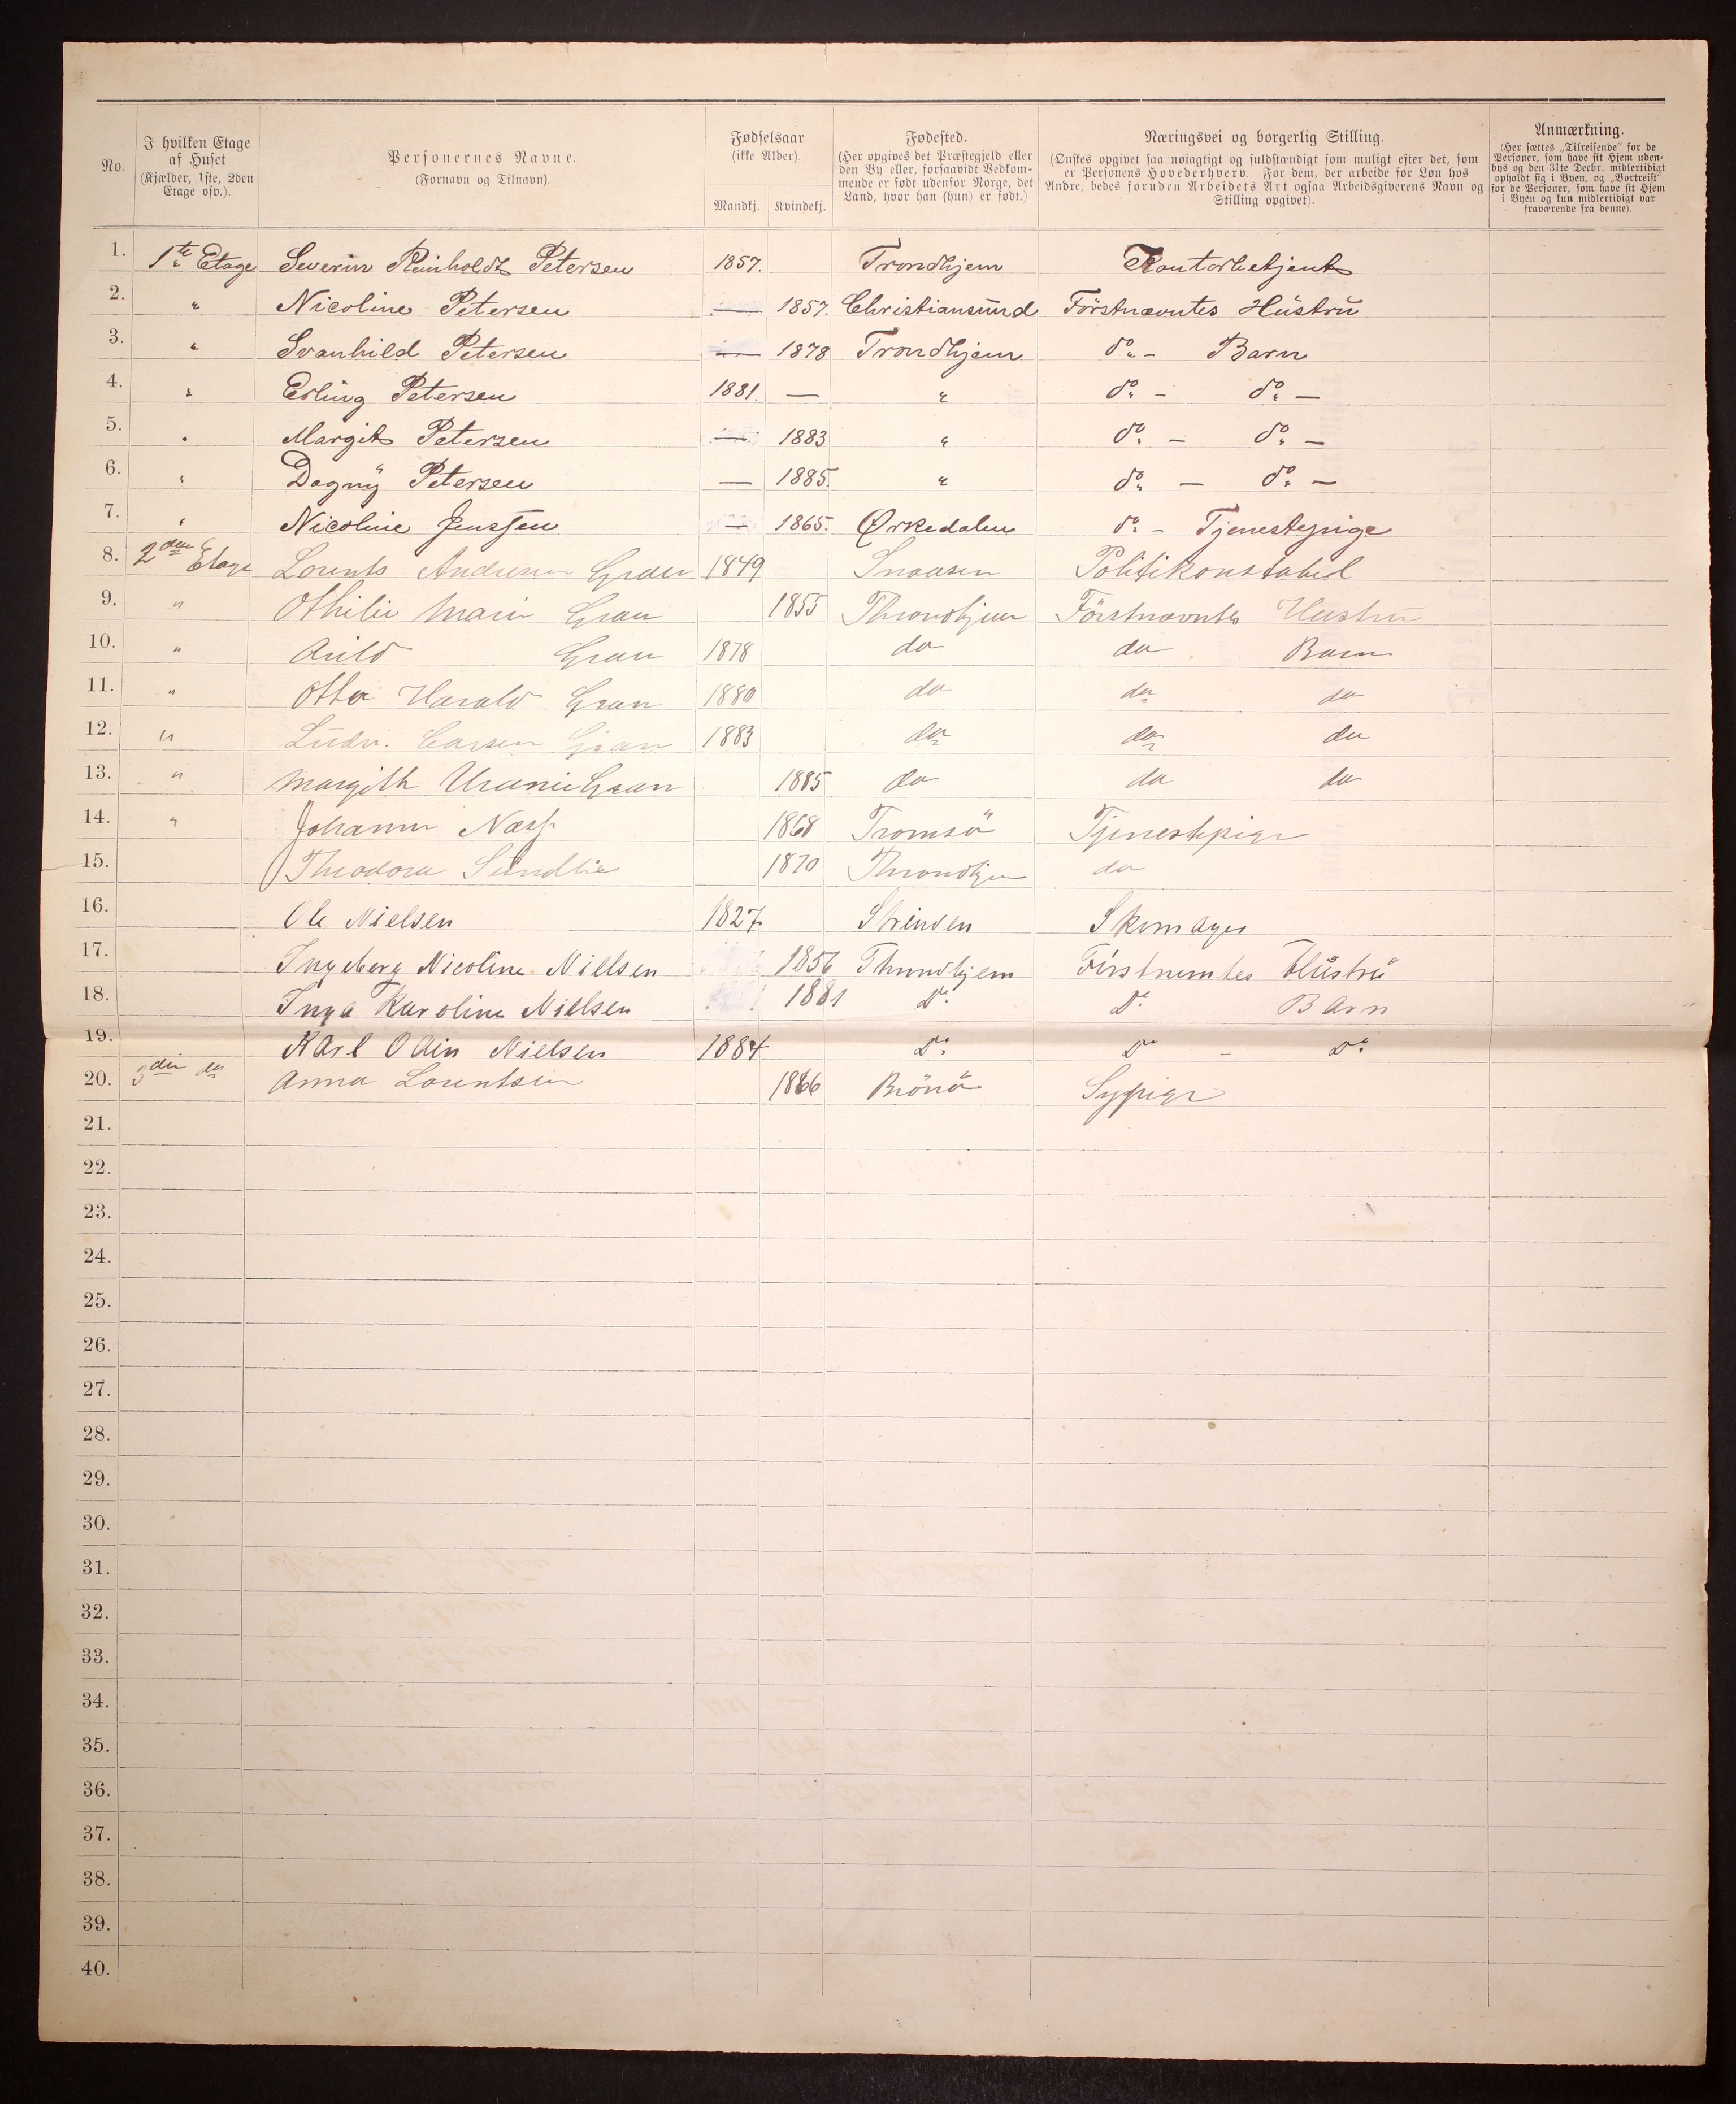 No.
I hvilken Etage
af Huset
(Kjælder, 1ste, 2den
Etage osv.).
Personernes Navne.
(Fornavn og Tilnavn).
Fødselsaar
(ikke Alder).
Mandkj. Kvindekj.
Fødested.
(Her opgives det Præstegjeld eller
den By eller, forsaavidt Vedkom-
mende er født udenfor Norge, det
Land, hvor han (hun) er født.)
Næringsvei og borgerlig Stilling.
(Ønskes opgivet saa nøiagtigt og fuldstændigt som muligt efter det, som
er Personens Hovederhverv. For dem, der arbeide for Løn hos
Andre, bedes foruden Arbeidets Art ogsaa Arbeidsgiverens Navn og
Stilling opgivet).
Anmærkning.
(Her sættes „Tilreisende" for de
Personer, som have sit Hjem uden-
bys og den 31te Decbr. midlertidigt
opholdt sig i Byen, og „Bortreist"
for de Personer, som have sit Hjem
i Byen og kun midlertidigt var
fraværende fra denne).
1. 1te Etage Severin Reinholdt Petersen 1857. Trondhjem Kontorbetjent
2. " Nicoline Petersen — 1857. Christiansund Förstnævntes Hüstrü
3. " Svanhild Petersen — 1878 Trondhjem do - Barn
4. " Erling Petersen 1881. — " do - do -
5. " Margit Petersen — 1883 " do - do -
6. " Dagny Petersen — 1885. " do - do -
7. " Nicoline Jenssen — 1865. Ørkedalen do - Tjenestepige
8. 2den Etage Lorents Andresen Gran 1849 Snaasen Politikonstabel
9. " Othilie Marie Gran 1855 Throndhjem Förstnævntes Hustrü
10. " Arild Gran 1878 do do Barn
11. " Otto Harald Gran 1880 do do do
12. " Ludv. Carsen Gran 1883 do do do
13. " Margith Uranie Gran 1885 do do do
14. " Johanna Næss 1868 Tromsö Tjenestepige
15. Theodora Sundlie 1870 Throndhjem do
16. Ole Nielsen 1827 Strinden Skomager
17. Ingeborg Nicoline Nielsen 1856 Thrundhjem Förstnemtes Hüstrü
18. Inga Karoline Nielsen 1881 Do Do Barn
19. Karl Odin Nielsen 1884 Do Do - Do
20. 3die do Anna Lorentsen 1866 Brönö Sypige
21.
22.
23.
24.
25.
26.
27.
28.
29.
30.
31.
32.
33.
34.
35.
36.
37.
38.
39.
40.